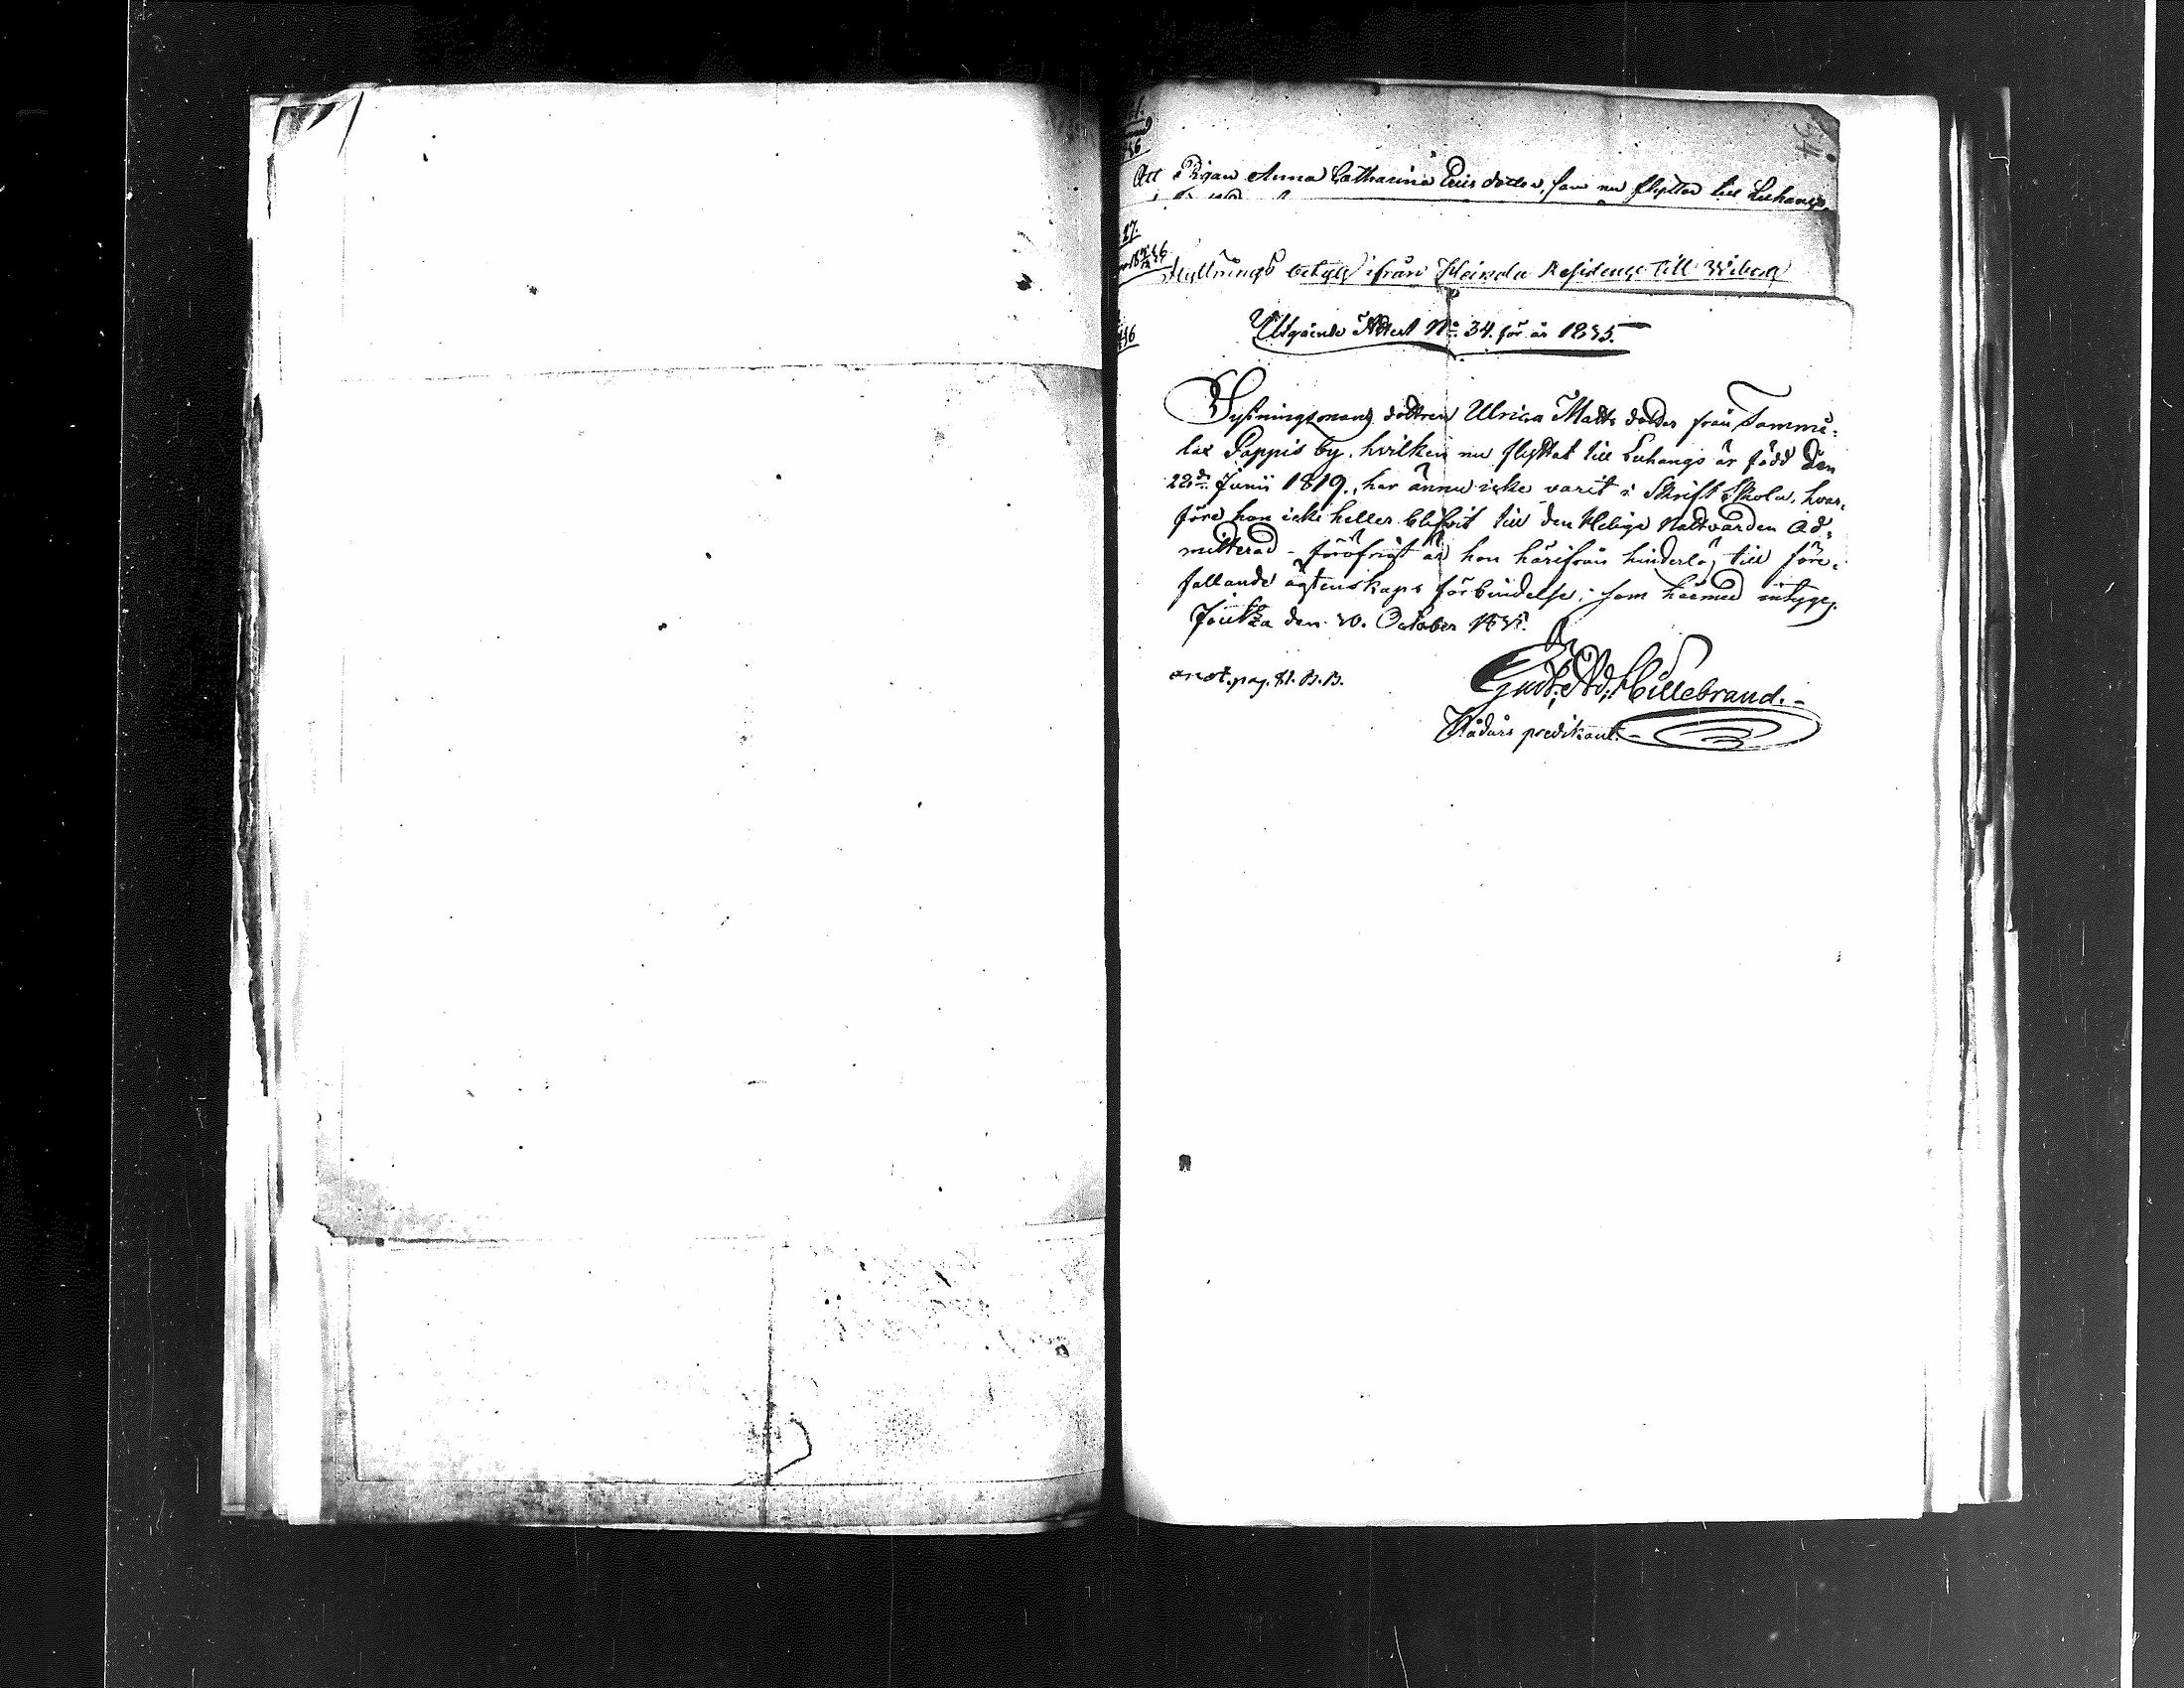 Att Pigan Anna Catharina Ericsdotter, som nu flyttar till Luhango
27.
Flyttnings betyg ifrån Heinola Residence till Wiborg
Utgående Attest No. 34. för år 1835.
Sysiningmans dottren Ulrica Matts dotter från Tammi-
lax Pappis by, hvilken nu flyttat till Luhango är född den
28de Junii 1819., har ännu icke varit i Skrift Skola, hvar-
före hon icke heller blifvit till den Heliga Nattvarden ad-
mitterad - föröfrigt är hon härifrån hinderlös till före-
fallande ägtenskaps förbindelse; som härmed intygas.
Joutza den 30. October 1835.
Gust. Ad. Hillebrand.-
anot. pag. 81. B.B.
Wådårs predikant.-